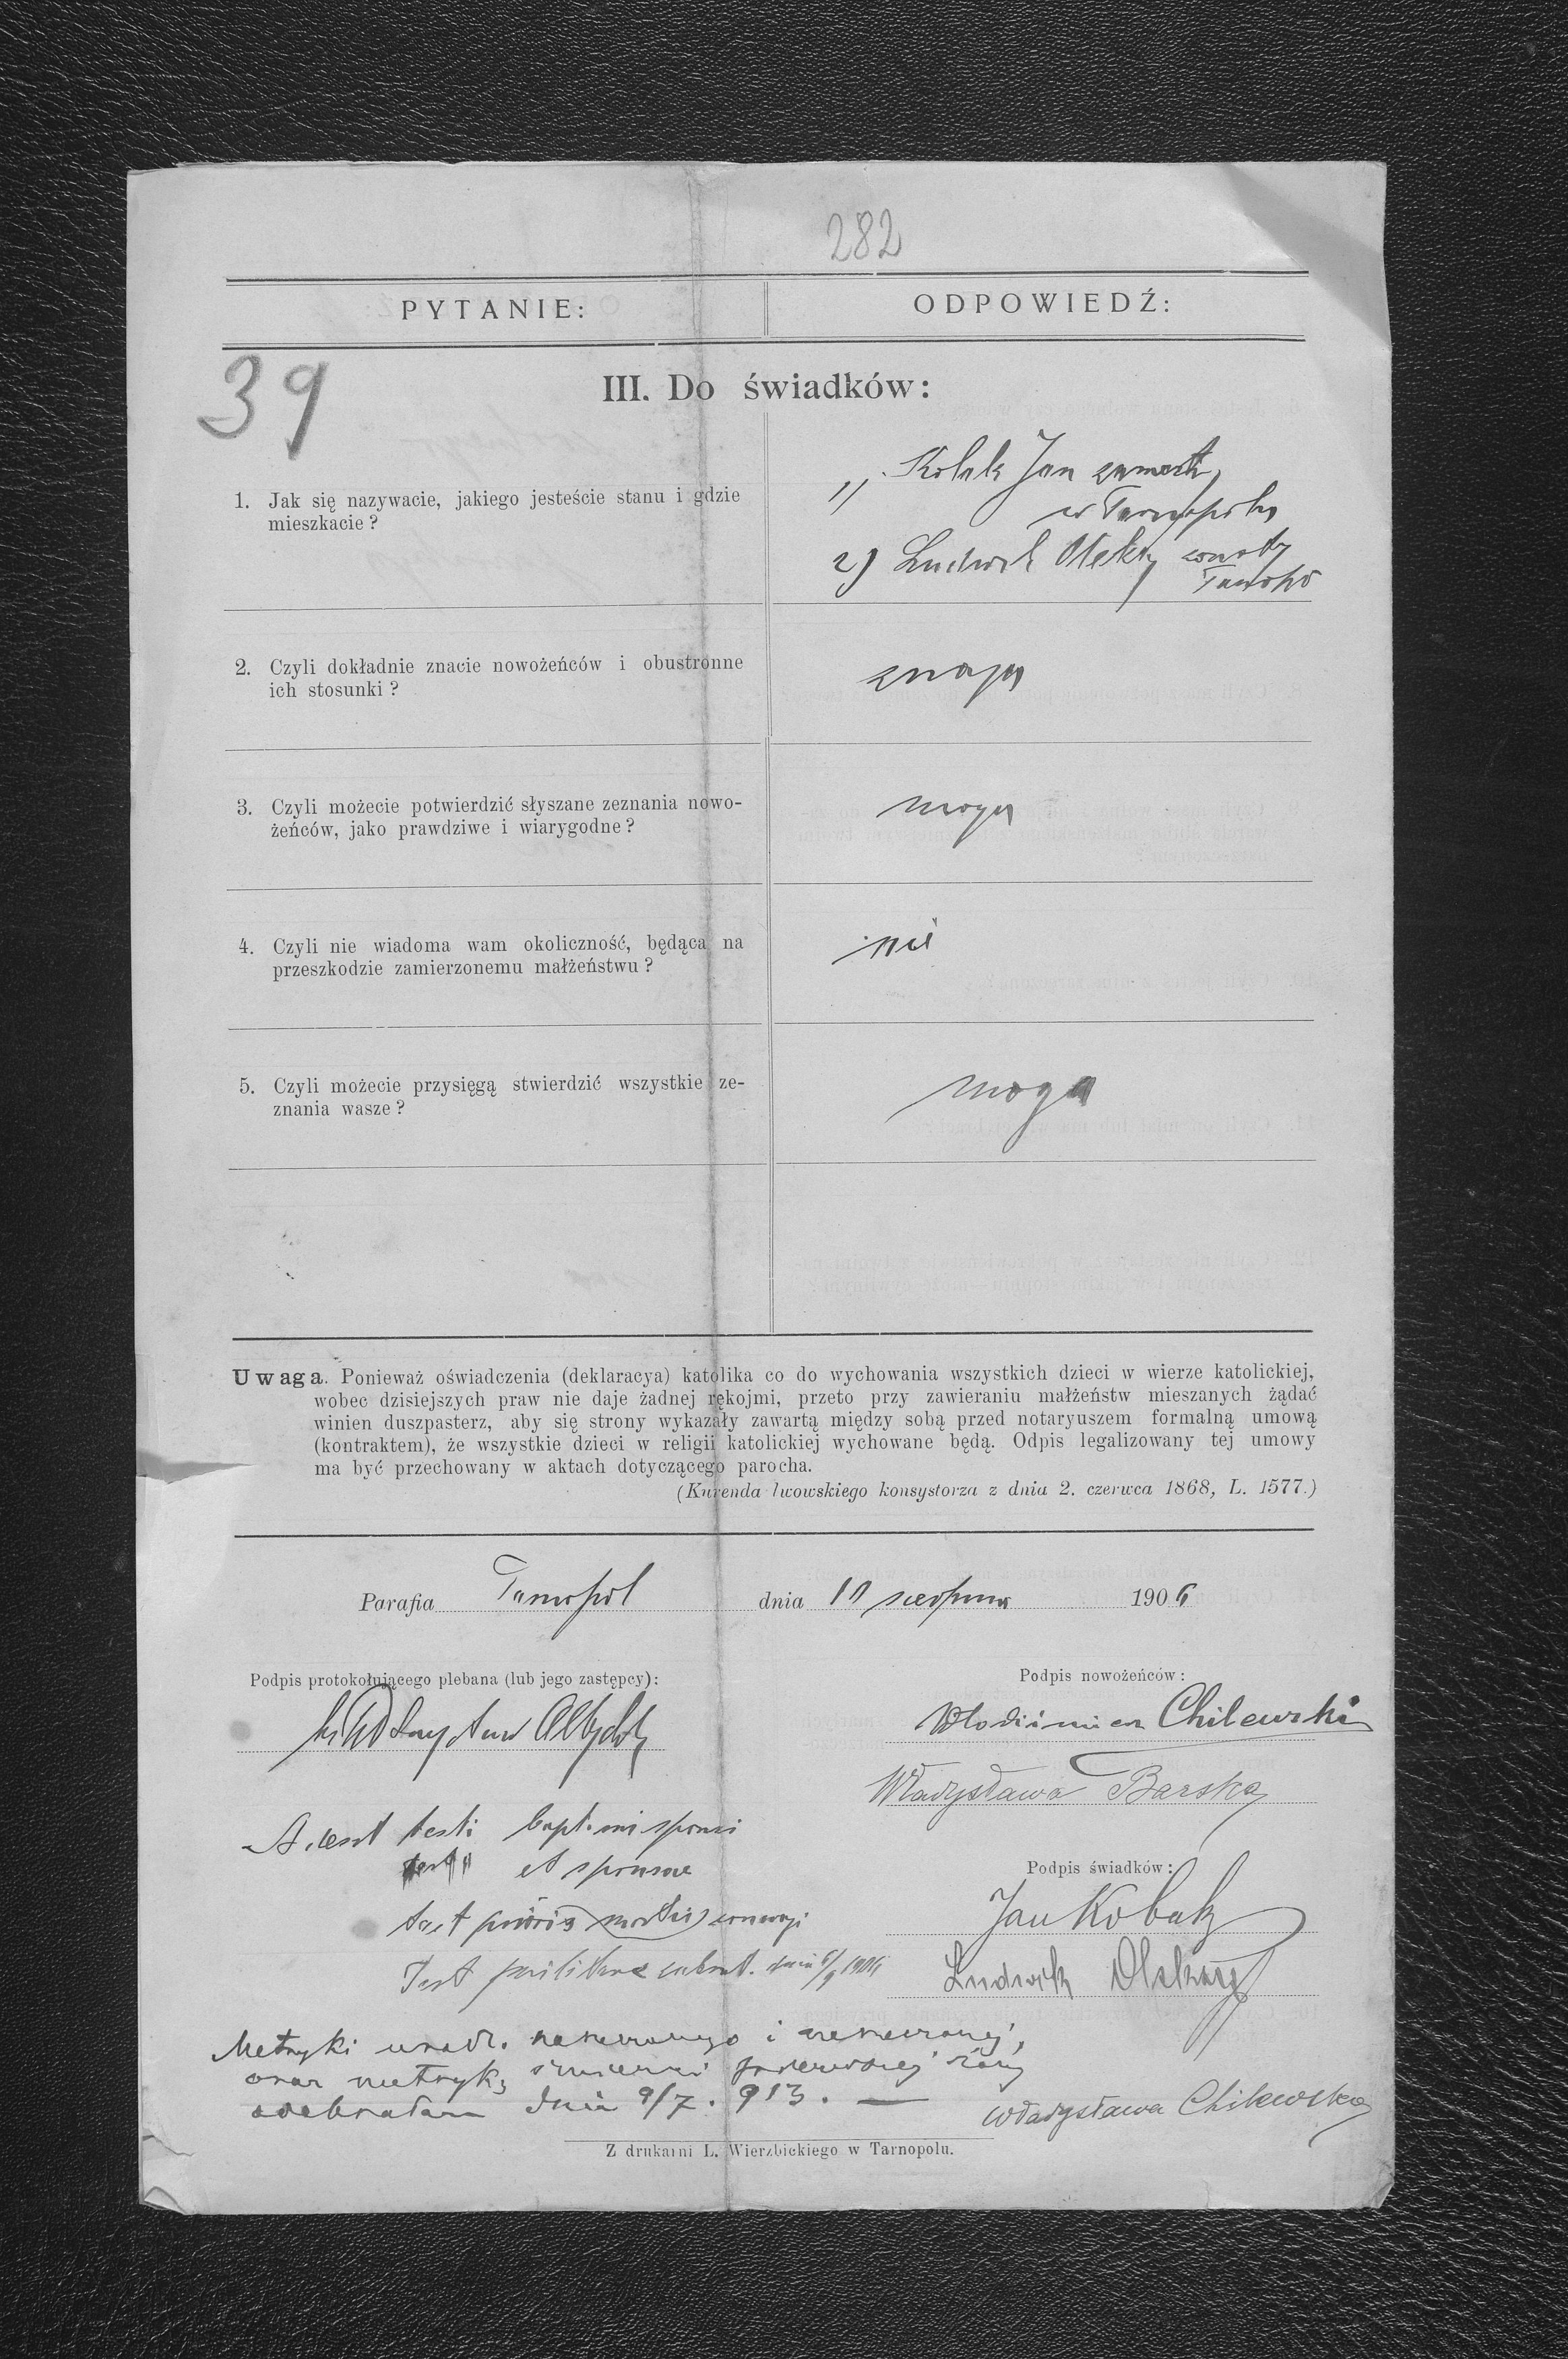 282
PYTANIE: ODPOWIEDŹ:
39
III. Do świadków:
1. Jak się nazywacie, jakiego jesteście stanu i gdzie
mieszkacie?
1) Jan
w Tarnopolu
2) Ludwik
2. Czyli dokładnie znacie nowożeńców i obustronne
ich stosunki?
znają
3. Czyli możecie potwierdzić słyszane zeznania nowo-
żeńców, jako prawdziwe i wiarygodne?
mogą
4. Czyli nie wiadoma wam okoliczność, będąca na
przeszkodzie zamierzonemu małżeństwu?
nie
5. Czyli możecie przysięgą stwierdzić wszystkie ze-
znania wasze?
mogą
Uwaga. Ponieważ oświadczenia (deklaracya) katolika co do wychowania wszystkich dzieci w wierze katolickiej,
wobec dzisiejszych praw nie daje żadnej rękojmi, przeto przy zawieraniu małżeństw mieszanych żądać
winien duszpasterz, aby się strony wykazały zawartą między sobą przed notaryuszem formalną umową
(kontraktem), że wszystkie dzieci w religii katolickiej wychowane będą. Odpis legalizowany tej umowy
ma być przechowany w aktach dotyczącego parocha.
(Kurenda lwowskiego konsystorza z dnia 2. czerwca 1868, L. 1577.)
Parafia Tarnopol dnia sierpnia 1906
Podpis protokołującego plebana (lub jego zastępcy):
Podpis nowożeńców:
Włodzimierz Chilewski
Władysława Barska
testi bapt. sponsi
et sponsae
Podpis świadków:
Jan Kobak
Test
Ludwik
Metryki urodz. i
oraz metrykę śmierci pierwszej żony
odebrałam dnia 9/7. 913. —
Władysława Chilewska
Z drukarni L. Wierzbickiego w Tarnopolu.